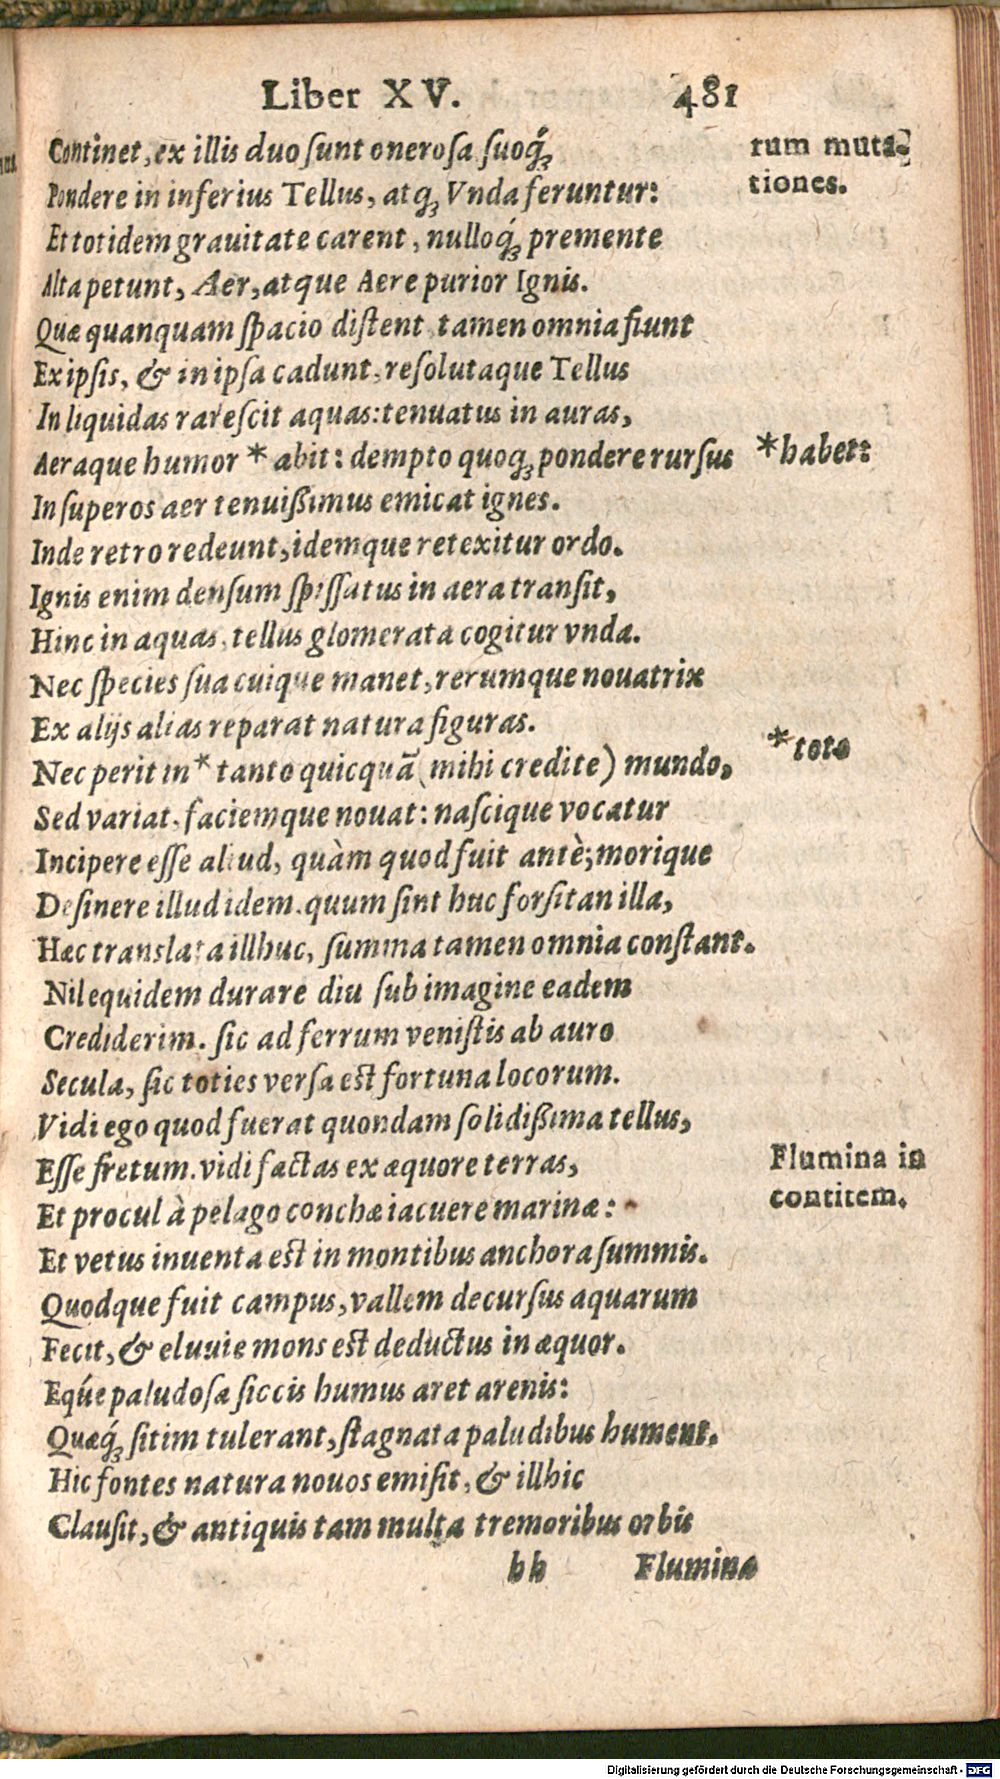 Liber XV. 481
Continet, ex illis duo ſunt oneroſa ſuoq́ꝫ
Pondere in inferius Tellus, atqꝫ Vnda feruntur:
Et totidem grauitate carent, nulloq́ꝫ premente
Alta petunt, Aer, atque Aere purior Ignis.
Quæ quanquam ſpacio diſtent, tamen omnia fiunt
Ex ipſis, & in ipſa cadunt, reſolutaque Tellus
In liquidas rareſcit aquas: tenuatus in auras,
Aeraque humor * abit: dempto quoqꝫ pondere rurſus
In ſuperos aer tenuißimus emicat ignes.
Inde retro redeunt, idemque retexitur ordo.
Ignis enim denſum ſpiſſatus in aera tranſit,
Hinc in aquas, tellus glomerata cogitur vnda.
Nec ſpecies ſua cuique manet, rerumque nouatrix
Ex alijs alias reparat natura figuras.
Nec perit in * tanto quicquã (mihi credite) mundo,
Sed variat, faciemque nouat: naſcique vocatur
Incipere eſſe aliud, quàm quod fuit antè; morique
Deſinere illud idem. quum ſint huc forſitan illa,
Hæc translata illhuc, ſumma tamen omnia conſtant.
Nil equidem durare diu ſub imagine eadem
Crediderim. ſic ad ferrum veniſtis ab auro
Secula, ſic toties verſa eſt fortuna locorum.
Vidi ego quod fuerat quondam ſolidißima tellus,
Eſſe fretum. vidi factas ex æquore terras,
Et procul à pelago conchæ iacuere marinæ:
Et vetus inuenta eſt in montibus anchora ſummis.
Quodque fuit campus, vallem decurſus aquarum
Fecit, & eluuie mons eſt deductus in æquor.
Eq́ue paludoſa ſiccis humus aret arenis:
Quæq́ꝫ ſitim tulerant, ſtagnata paludibus hument.
Hic fontes natura nouos emiſit, & illhic
Clauſit, & antiquis tam multa tremoribus orbis
bb Flumina
rum muta-
tiones.
*habet:
*toto
Flumina in
contitem.
Digitalisierung gefördert durch die Deutsche Forschungsgemeinschaft - DFG